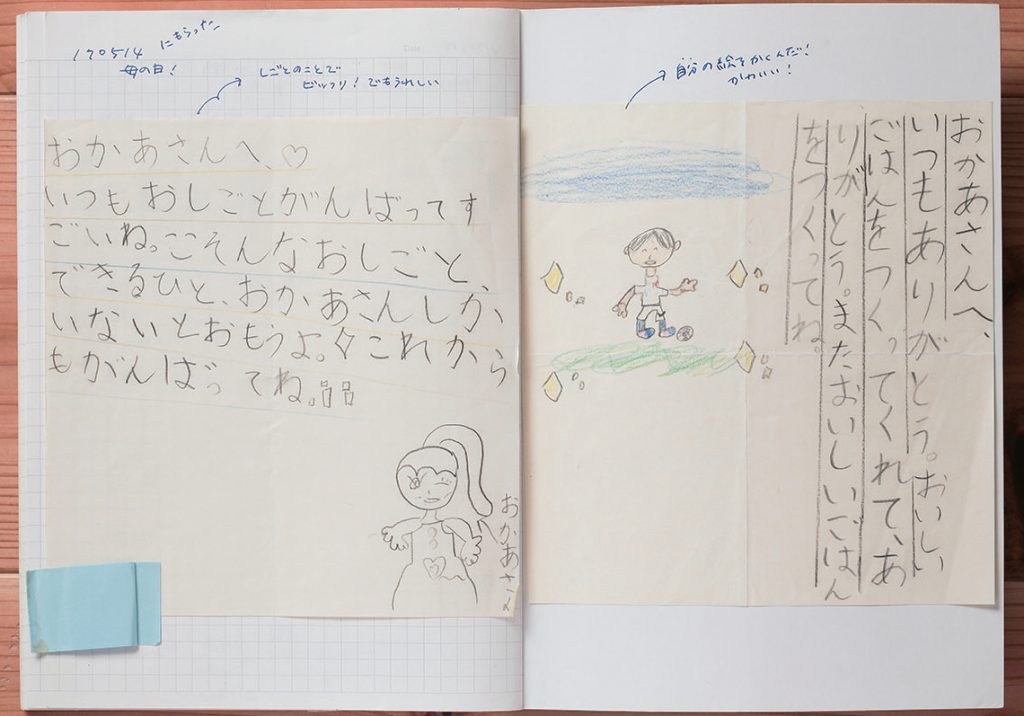 170514 にもらった
母の日!
しごとのことで
ビックリ! でもうれしい
おかあさんへ、♡
いつもおしごとがんばってす
ごいね。こそんなおしごと、
できるひと、おかあさんしか、
いないとおもうよ。これから
もがんばってね。
おかあさん
自分の絵をかくんだ!
かわいい!
おかあさんへ、
いつもありがとう。おいしい
ごはんをつくってくれて、あ
りがとう。またおいしいごはん
をつくってね。